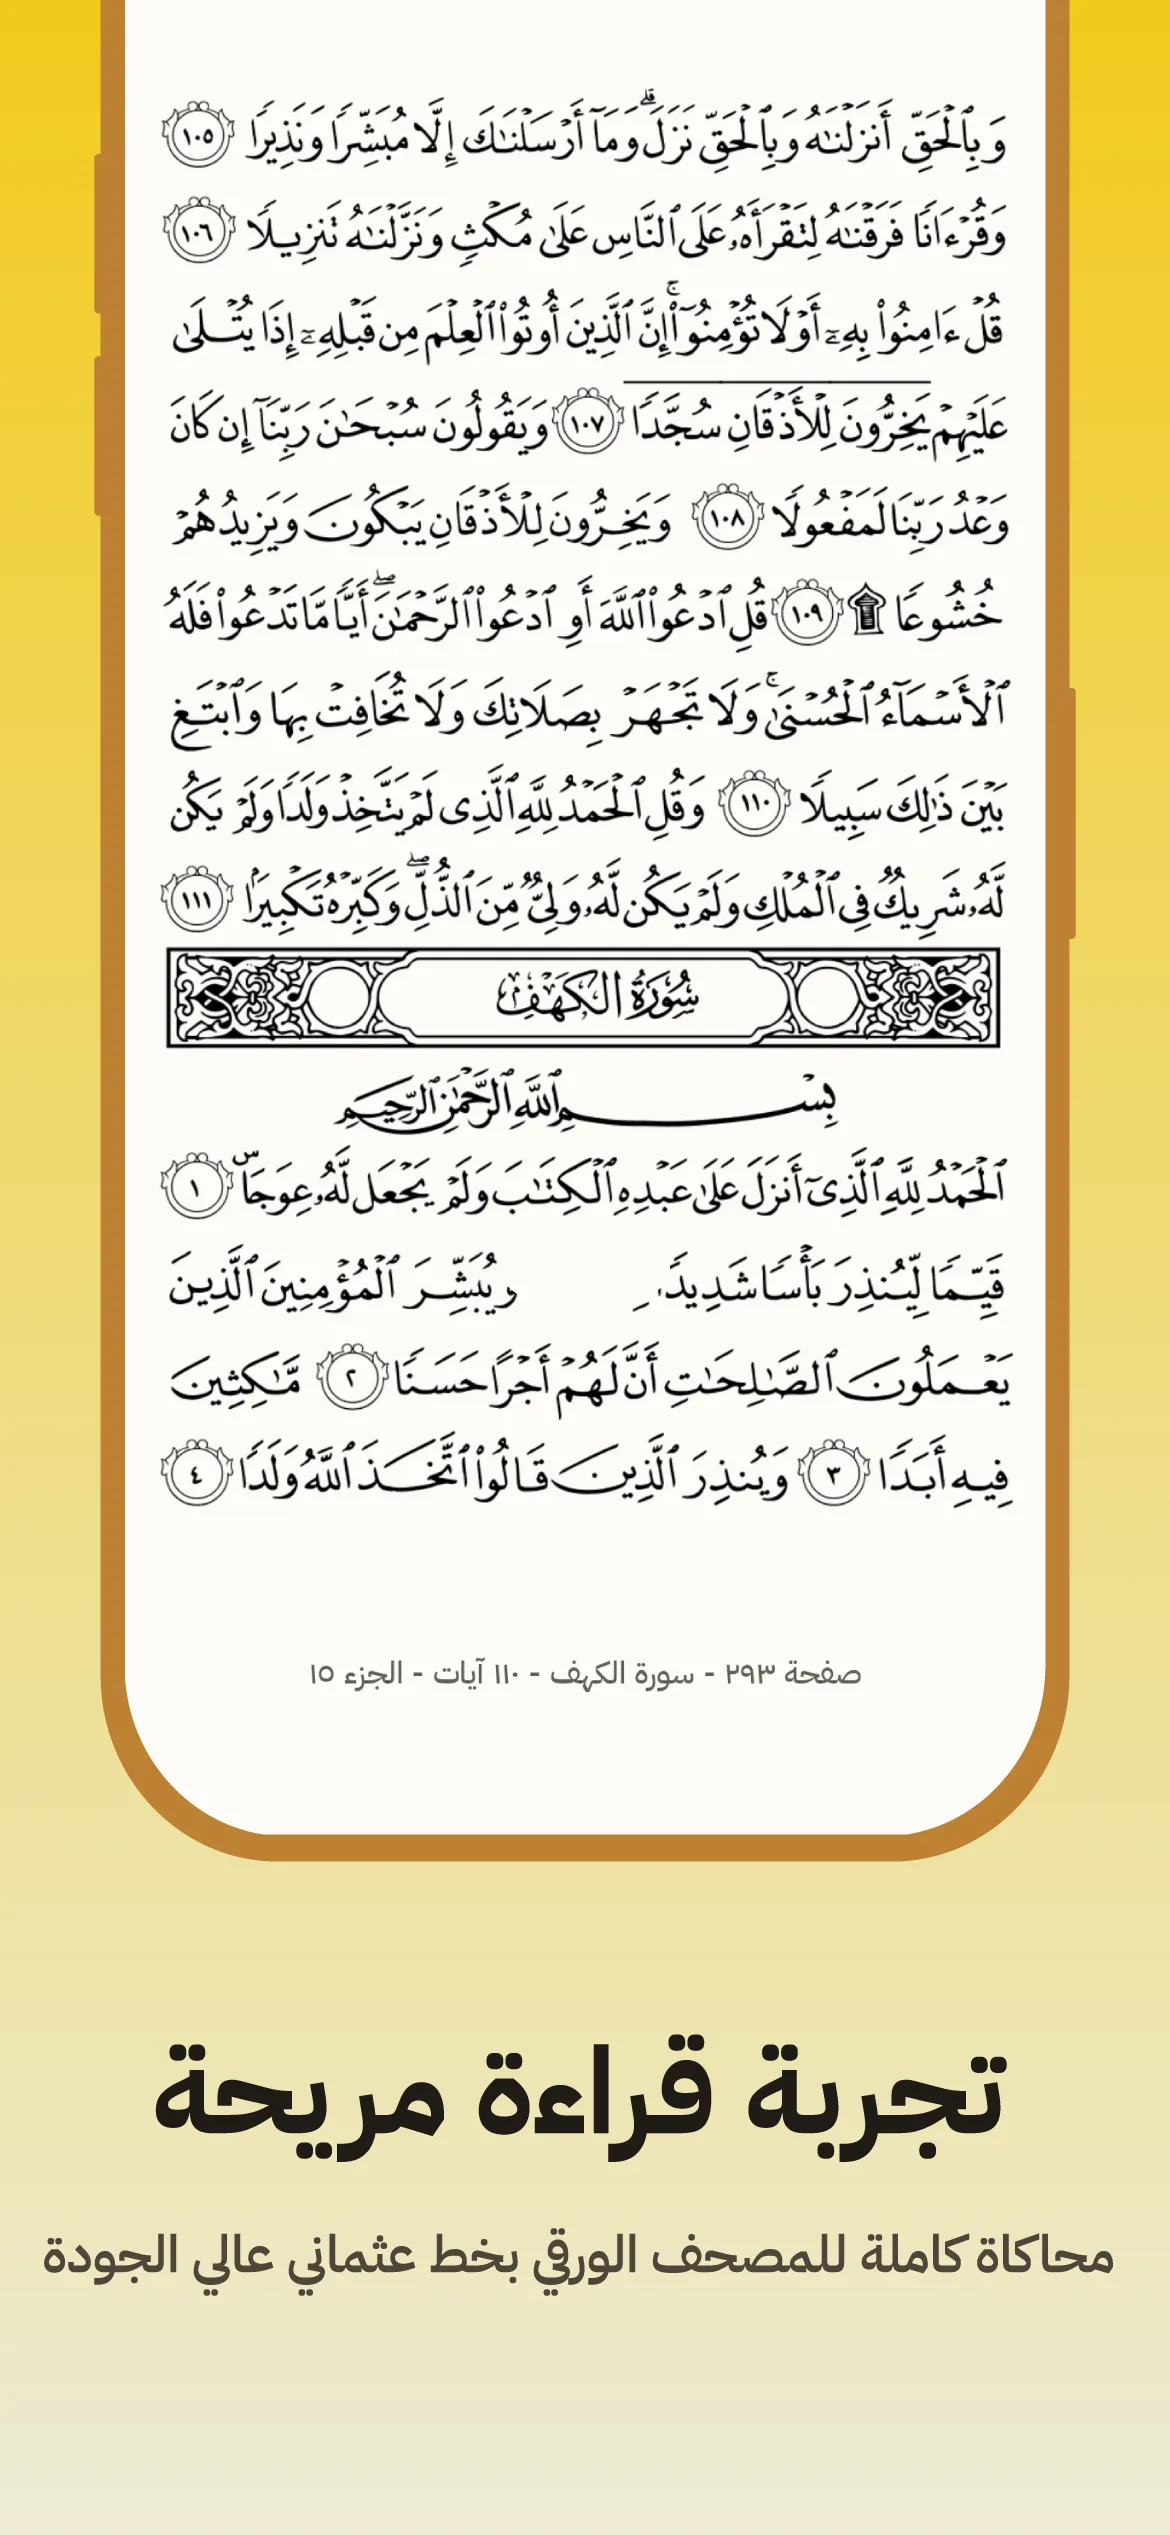 وَبِٱلۡحَقِّ أَنزَلۡنَٰهُ وَبِٱلۡحَقِّ نَزَلَۗ وَمَآ أَرۡسَلۡنَٰكَ إِلَّا مُبَشِّرٗا وَنَذِيرٗا ١٠٥
وَقُرۡءَانٗا فَرَقۡنَٰهُ لِتَقۡرَأَهُۥ عَلَى ٱلنَّاسِ عَلَىٰ مُكۡثٖ وَنَزَّلۡنَٰهُ تَنزِيلٗا ١٠٦
قُلۡ ءَامِنُواْ بِهِۦٓ أَوۡ لَا تُؤۡمِنُوٓاْۚ إِنَّ ٱلَّذِينَ أُوتُواْ ٱلۡعِلۡمَ مِن قَبۡلِهِۦٓ إِذَا يُتۡلَىٰ
عَلَيۡهِمۡ يَخِرُّونَ لِلۡأَذۡقَانِ سُجَّدٗا ١٠٧ وَيَقُولُونَ سُبۡحَٰنَ رَبِّنَآ إِن كَانَ
وَعۡدُ رَبِّنَا لَمَفۡعُولٗا ١٠٨ وَيَخِرُّونَ لِلۡأَذۡقَانِ يَبۡكُونَ وَيَزِيدُهُمۡ
خُشُوعٗا ۩ ١٠٩ قُلِ ٱدۡعُواْ ٱللَّهَ أَوِ ٱدۡعُواْ ٱلرَّحۡمَٰنَۖ أَيّٗا مَّا تَدۡعُواْ فَلَهُ
ٱلۡأَسۡمَآءُ ٱلۡحُسۡنَىٰۚ وَلَا تَجۡهَرۡ بِصَلَاتِكَ وَلَا تُخَافِتۡ بِهَا وَٱبۡتَغِ
بَيۡنَ ذَٰلِكَ سَبِيلٗا ١١٠ وَقُلِ ٱلۡحَمۡدُ لِلَّهِ ٱلَّذِي لَمۡ يَتَّخِذۡ وَلَدٗا وَلَمۡ يَكُن
لَّهُۥ شَرِيكٞ فِي ٱلۡمُلۡكِ وَلَمۡ يَكُن لَّهُۥ وَلِيّٞ مِّنَ ٱلذُّلِّۖ وَكَبِّرۡهُ تَكۡبِيرَۢا ١١١
سُورَةُ الكَهۡفِ
بِسۡمِ ٱللَّهِ ٱلرَّحۡمَٰنِ ٱلرَّحِيمِ
ٱلۡحَمۡدُ لِلَّهِ ٱلَّذِيٓ أَنزَلَ عَلَىٰ عَبۡدِهِ ٱلۡكِتَٰبَ وَلَمۡ يَجۡعَل لَّهُۥ عِوَجَاۜ ١
قَيِّمٗا لِّيُنذِرَ بَأۡسٗا شَدِيدٗ يُبَشِّرَ ٱلۡمُؤۡمِنِينَ ٱلَّذِينَ
يَعۡمَلُونَ ٱلصَّٰلِحَٰتِ أَنَّ لَهُمۡ أَجۡرًا حَسَنٗا ٢ مَّٰكِثِينَ
فِيهِ أَبَدٗا ٣ وَيُنذِرَ ٱلَّذِينَ قَالُواْ ٱتَّخَذَ ٱللَّهُ وَلَدٗا ٤
صفحة ٢٩٣ - سورة الكهف - ١١٠ آيات - الجزء ١٥
تجربة قراءة مريحة
محاكاة كاملة للمصحف الورقي بخط عثماني عالي الجودة